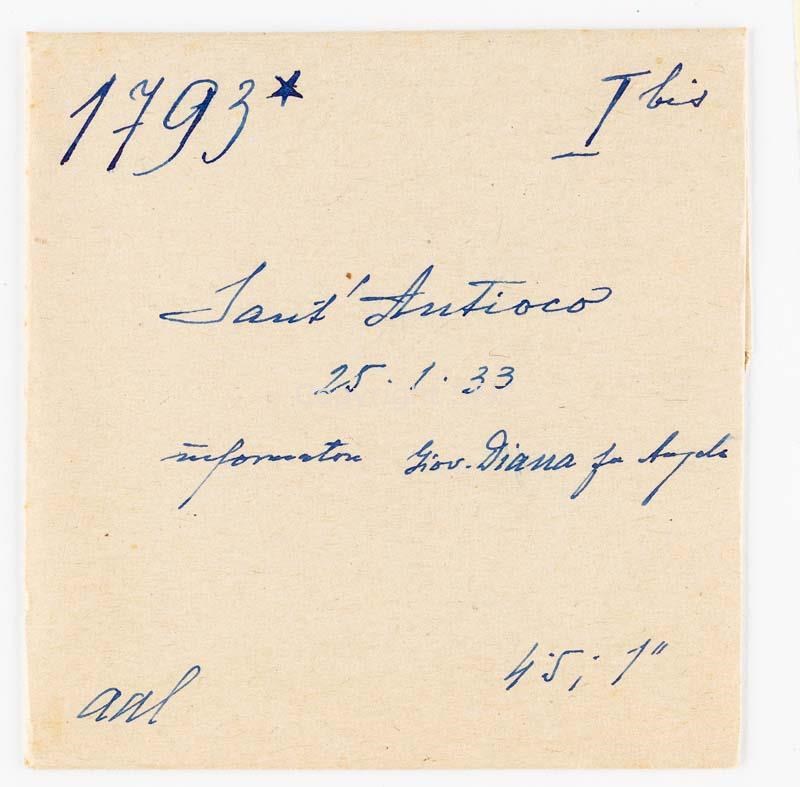 1793* I bis
Sant' Antioco
25 . 1 . 33
informatore Giov. Diana fu Angelo
45; 1"
aal